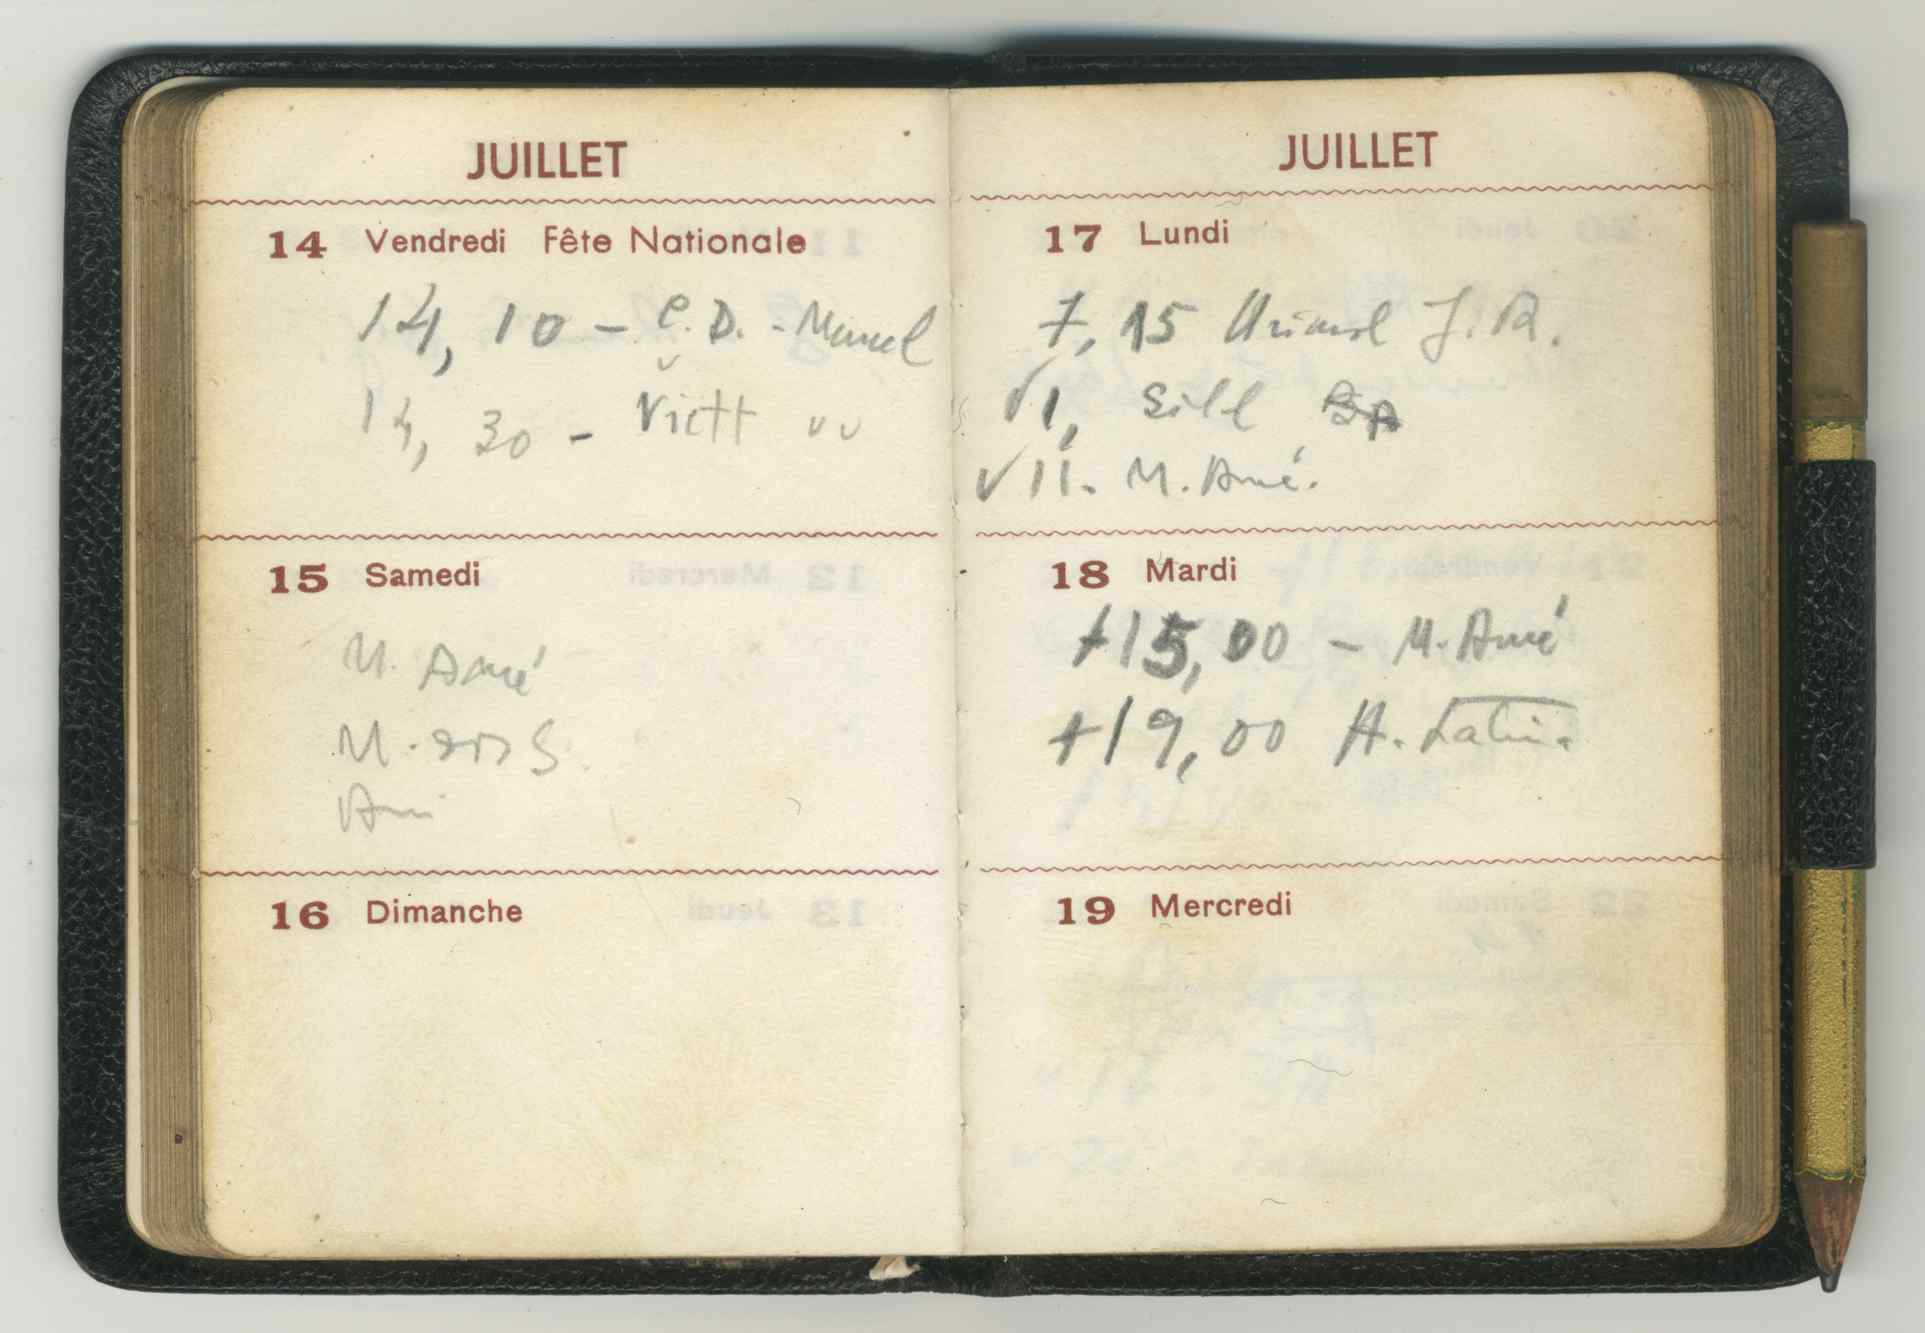 JUILLET
14 Vendredi Fête Nationale
14,10 - C.D. - Marcel
14,30 - Viett
15 Samedi
M. Amé
M.
16 Dimanche
JUILLET
17 Lundi
7,15 J.R.
√1, Sill
√11. M. Amé.
18 Mardi
+15,00 - M. Amé
+19,00 A. Latin.
19 Mercredi